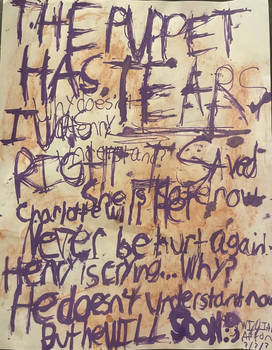 THE PUPPET
HAS TEARS
Why doesn't
I WAS Henry
understand?
RIGHT I Saved
her
She is safe now
Charlotte will
Never be hurt again.
Henry is crying... Why?
He doesn't understand now
But he WILL SOON :)